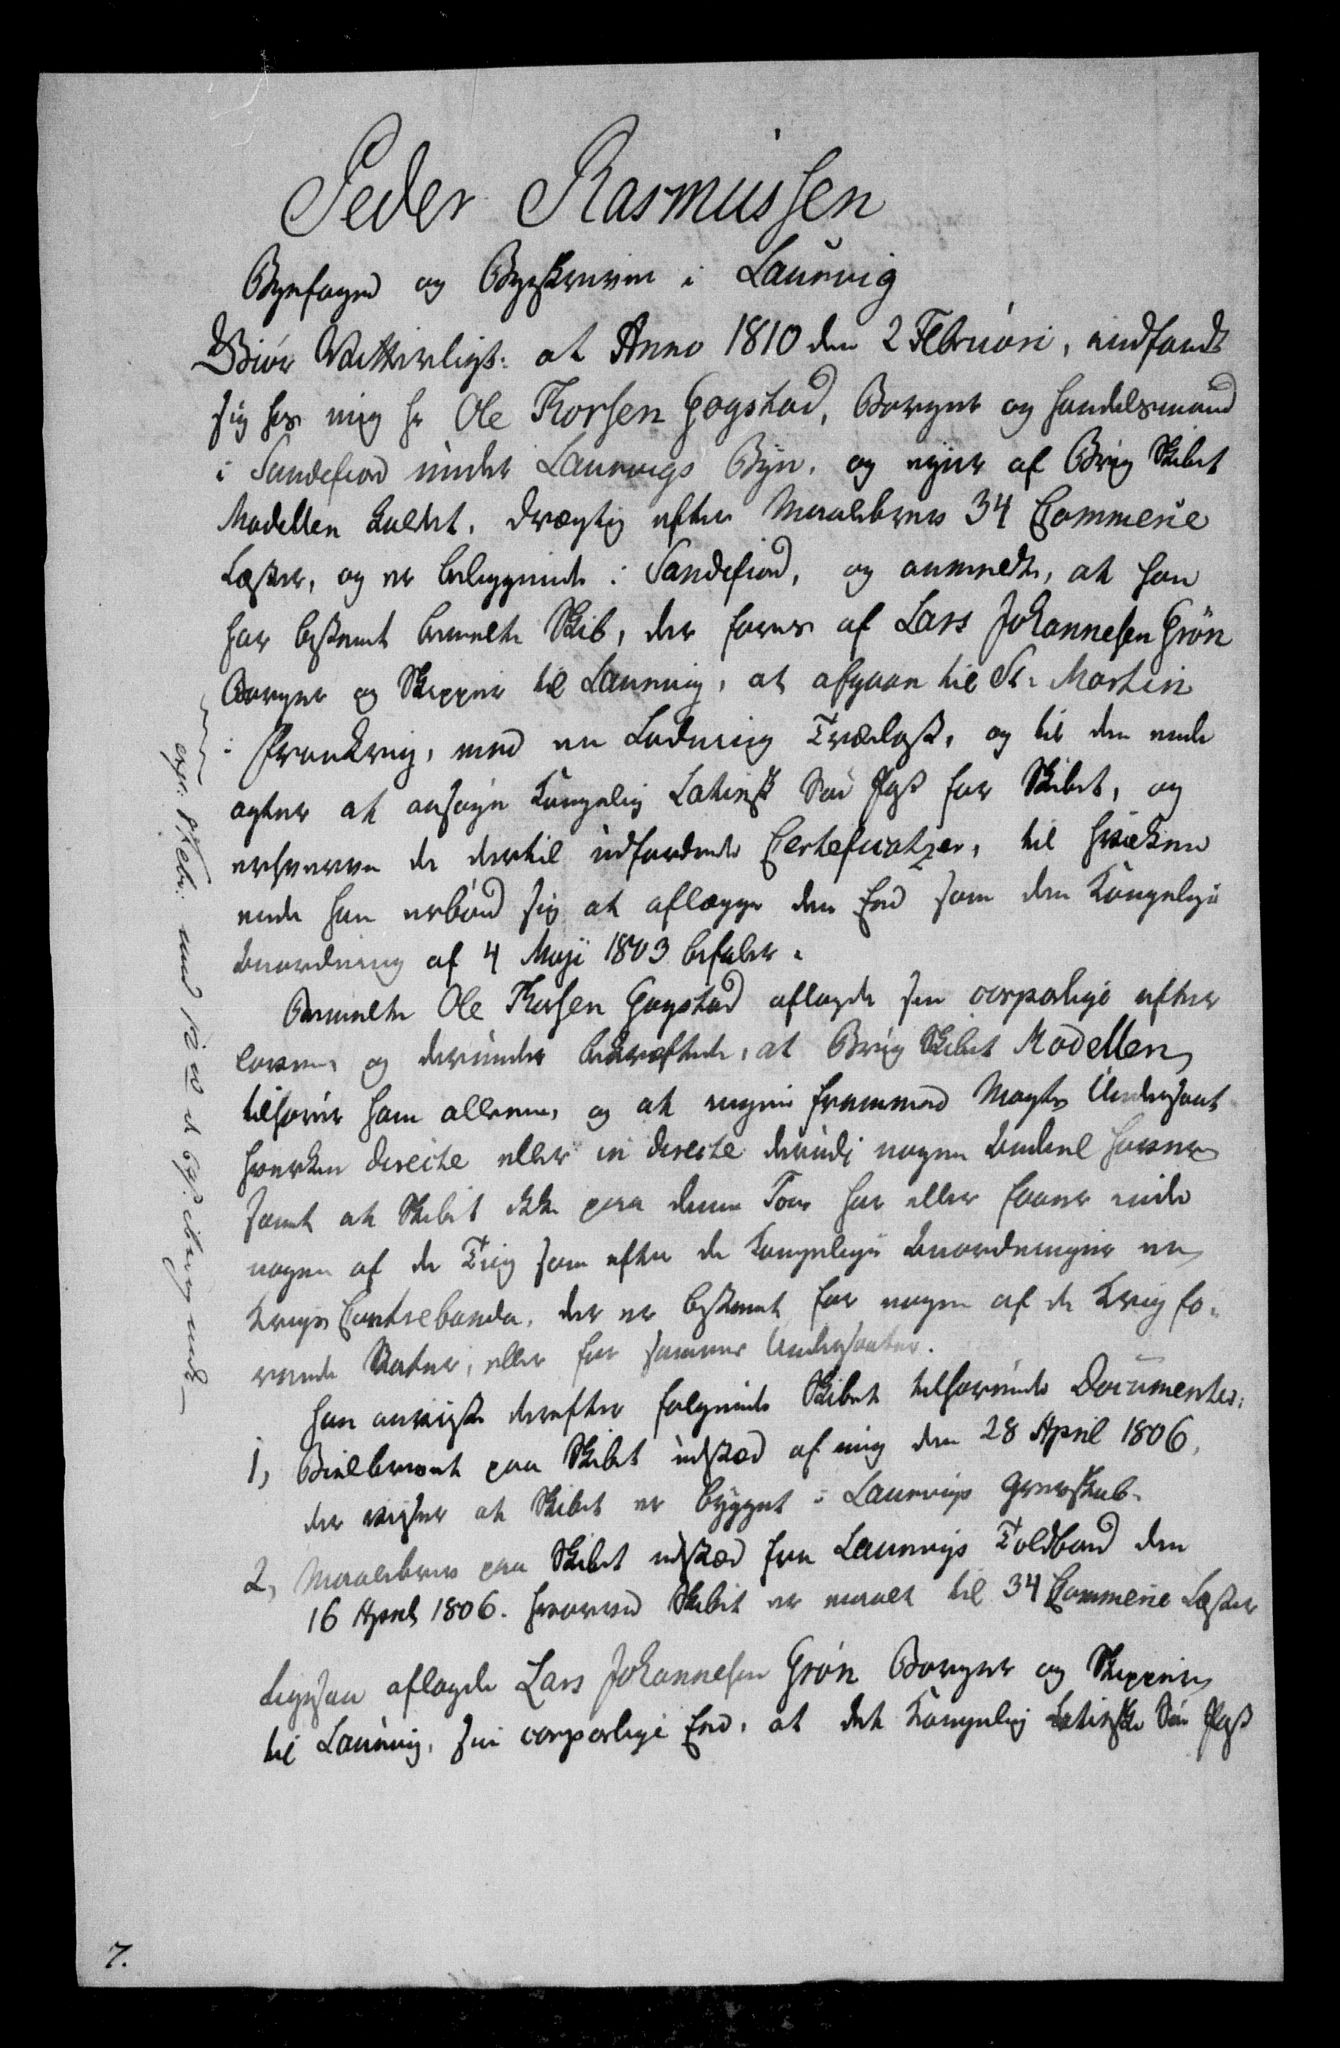 Peder Rasmussen
Byefoged og Byeskriver i Laurvig
Giör Vitterligt: at Anno 1810 den 2 Februari, indfandt
sig hos mig Hr Ole Thorsen Gogstad, Borger og Handelsmand
i Sandefiord under Laurvigs Bye, og eyer af Brig Skibet
Modellen kaldet, drægtig efter Maalebrev 34 Commerce
Læster, og er beliggende i Sandefiord, og anmeldte, at han
har bestemt bemelte Skib, der föres af Lars Johannesen Grön
Borger og Skipper til Laurvig, at afgaae til St. Martin
i Frankrig, med en Ladning Trælast, og til den ende
agter at ansøge Kongelig Latinsk Söe Pass for Skibet, og
erhverve de dertil udfordrende Certeficatzer, til hvilken
ende han erböd sig at aflægge den Eed som den Kongelige
Anordning af 4 Maji 1803 befaler.
Bemelte Ole Thorsen Gogstad aflagde sin corporlige efter
loven, og derunder bekræftede, at Brig Skibet Modellen
tilhörer ham allene, og at ingen fremmed Magts Undersaat
hverken directe eller in directe derudi nogen Andeel haver
samt at Skibet ikke paa denne Tour har eller faaer inde
nogen af de Ting som efter de Kongelige Anordninger er
Krigs Contrebande, der er bestemt for nogen af de Krig fö-
rende Stater, eller for sammes Undersaatter.
Han anviiste derefter fölgende Skibet tilhörende Documenter:
1, Biilbrevet paa Skibet udstæd af mig den 28 April 1806,
der viser at Skibet er bygget i Laurvigs Grevskab.
2, Maalebrev paa Skibet udstæd fra Laurvigs Toldbod den
16 April 1806. hvorved Skibet er maalt til 34 Commerce Læster
Ligesaa aflagde Lars Johannesen Grön Borger og Skipper
til Laurvig, sin corporlige Eed, at det Kongelig Latinske Söe Pass
exp: Febr.
7.